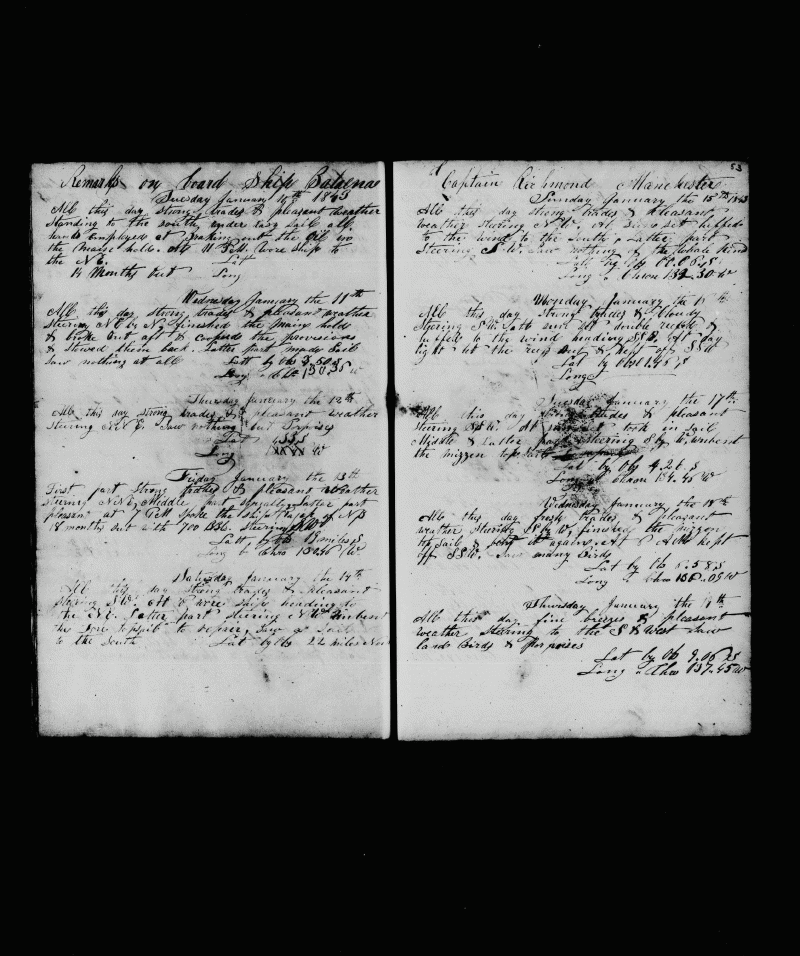 Remarks on board Ship Balaena
Tuesday January 10th 1843
All this day strong trades & pleasant weather
Standing to the south under easy sail all
hands employed at breaking out the oil in
the Maine hold. At 11 PM wore ship to
the NE. Lat
14 Months out Long
Wednesday January the 11th
All this day strong trades & pleasant weather
Steering NE by N finished the Main hold
& broke out aft & coopered the provisions
& stowed them back. Latter part made sail
Saw nothing at all Lat by Ob 3.50 S
Long 150.35 W
Thursday January the 12th
All this day strong trades & pleasant weather
steering NNE Saw nothing but Porpises
Lat S
Long W
Friday January the 13th
First part strong trades & pleasant weather
steering NNE, Middle part squally, Latter part
pleasant at PM spoke the ship of NB
18 months out with 700 bbls. Steering NW
Latt by Ob 18 miles S
Long by Chro W
Saturday January the 14th
All this day strong trades & pleasant
steering NW. wore ship heading to
the NE. Latter part steering NW unbent
the fore topsail to repair, Saw a sail
to the South Lat by Ob 22 miles North
53
Captain Richmond Manchester
Sunday January the 15th 1843
All this day strong trades & pleasant
weather steering NW. At sun set luffed
to the wind to the South, Latter part
Steering SW. Saw nothing of the whale kind
Latt by Ob S
Long " Chron 152.30 W
Monday January the 16th
All this day strong trades & cloudy
Steering SW. att sun set double reefed &
luffed to the wind heading SSE. At day
light let the reefs out & kept off SSW
Lat by Obs 1.45 S
Long
Tuesday January the 17th
All this day trades & pleasant
steering SSW. At sunset took in sail
Middle & Latter part steering S by W, unbent
the mizzen topsail
Lat by Ob 4.26 S
Long " chron 154.45 W
Wednesday January the 18th
All this day fresh trades & pleasant
weather steering S by W, finished the mizzen
topsail & bent it again. At kept
off SSW. Saw many Birds
Lat by Ob 5.58 S
Long " Chro 156.09 W
Thursday January the 19th
All this day fine breezes & pleasant
weather steering to the S & West Saw
land birds & porpises
Lat by Ob 9.06 S
Long " Chro 157.45 W